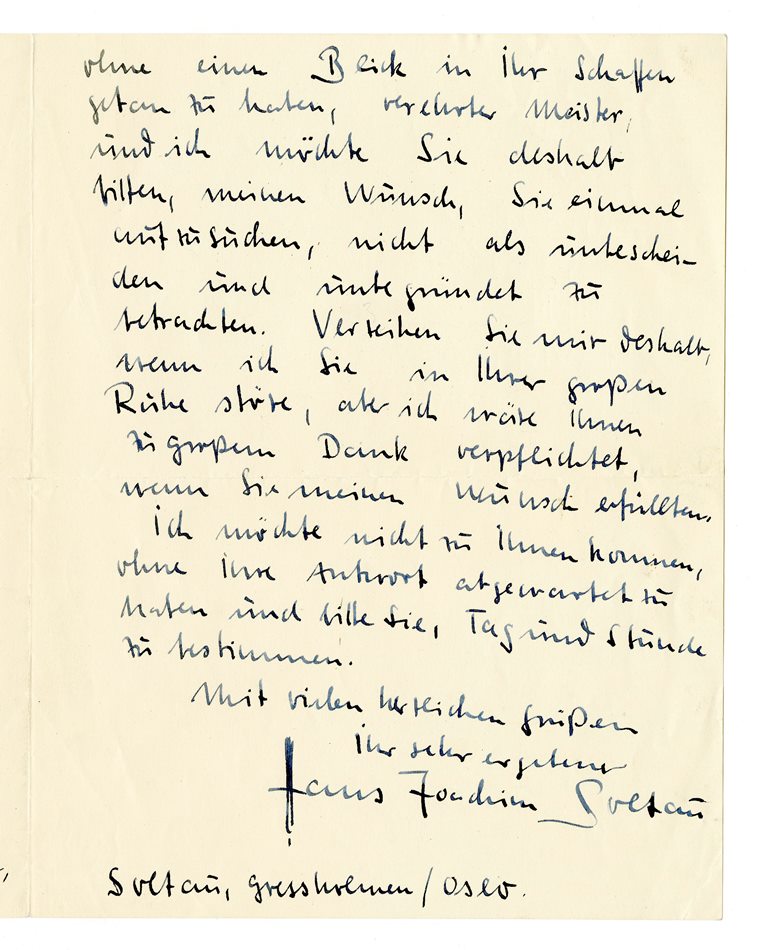 ohne einen Blick in Ihr Schaffen
getan zu haben, verehrter Meister,
und ich möchte Sie deshalb
bitten, meinen Wunsch, Sie einmal
aufzusuchen, nicht als unbeschei-
den und unbegründet zu
betrachten. Verzeihen Sie mir deshalb,
wenn ich Sie in Ihrer großen
Ruhe störe, aber ich wäre Ihnen
zu großem Dank verpflichtet,
wenn Sie meinen Wunsch erfüllten.
Ich möchte nicht zu Ihnen kommen,
ohne Ihre Antwort abgewartet zu
haben und bitte Sie, Tag und Stunde
zu bestimmen.
Mit vielen herzlichen Grüßen
Ihr sehr ergebener
Hans Joachim Soltau
Soltau, Gressholmen/Oslo.